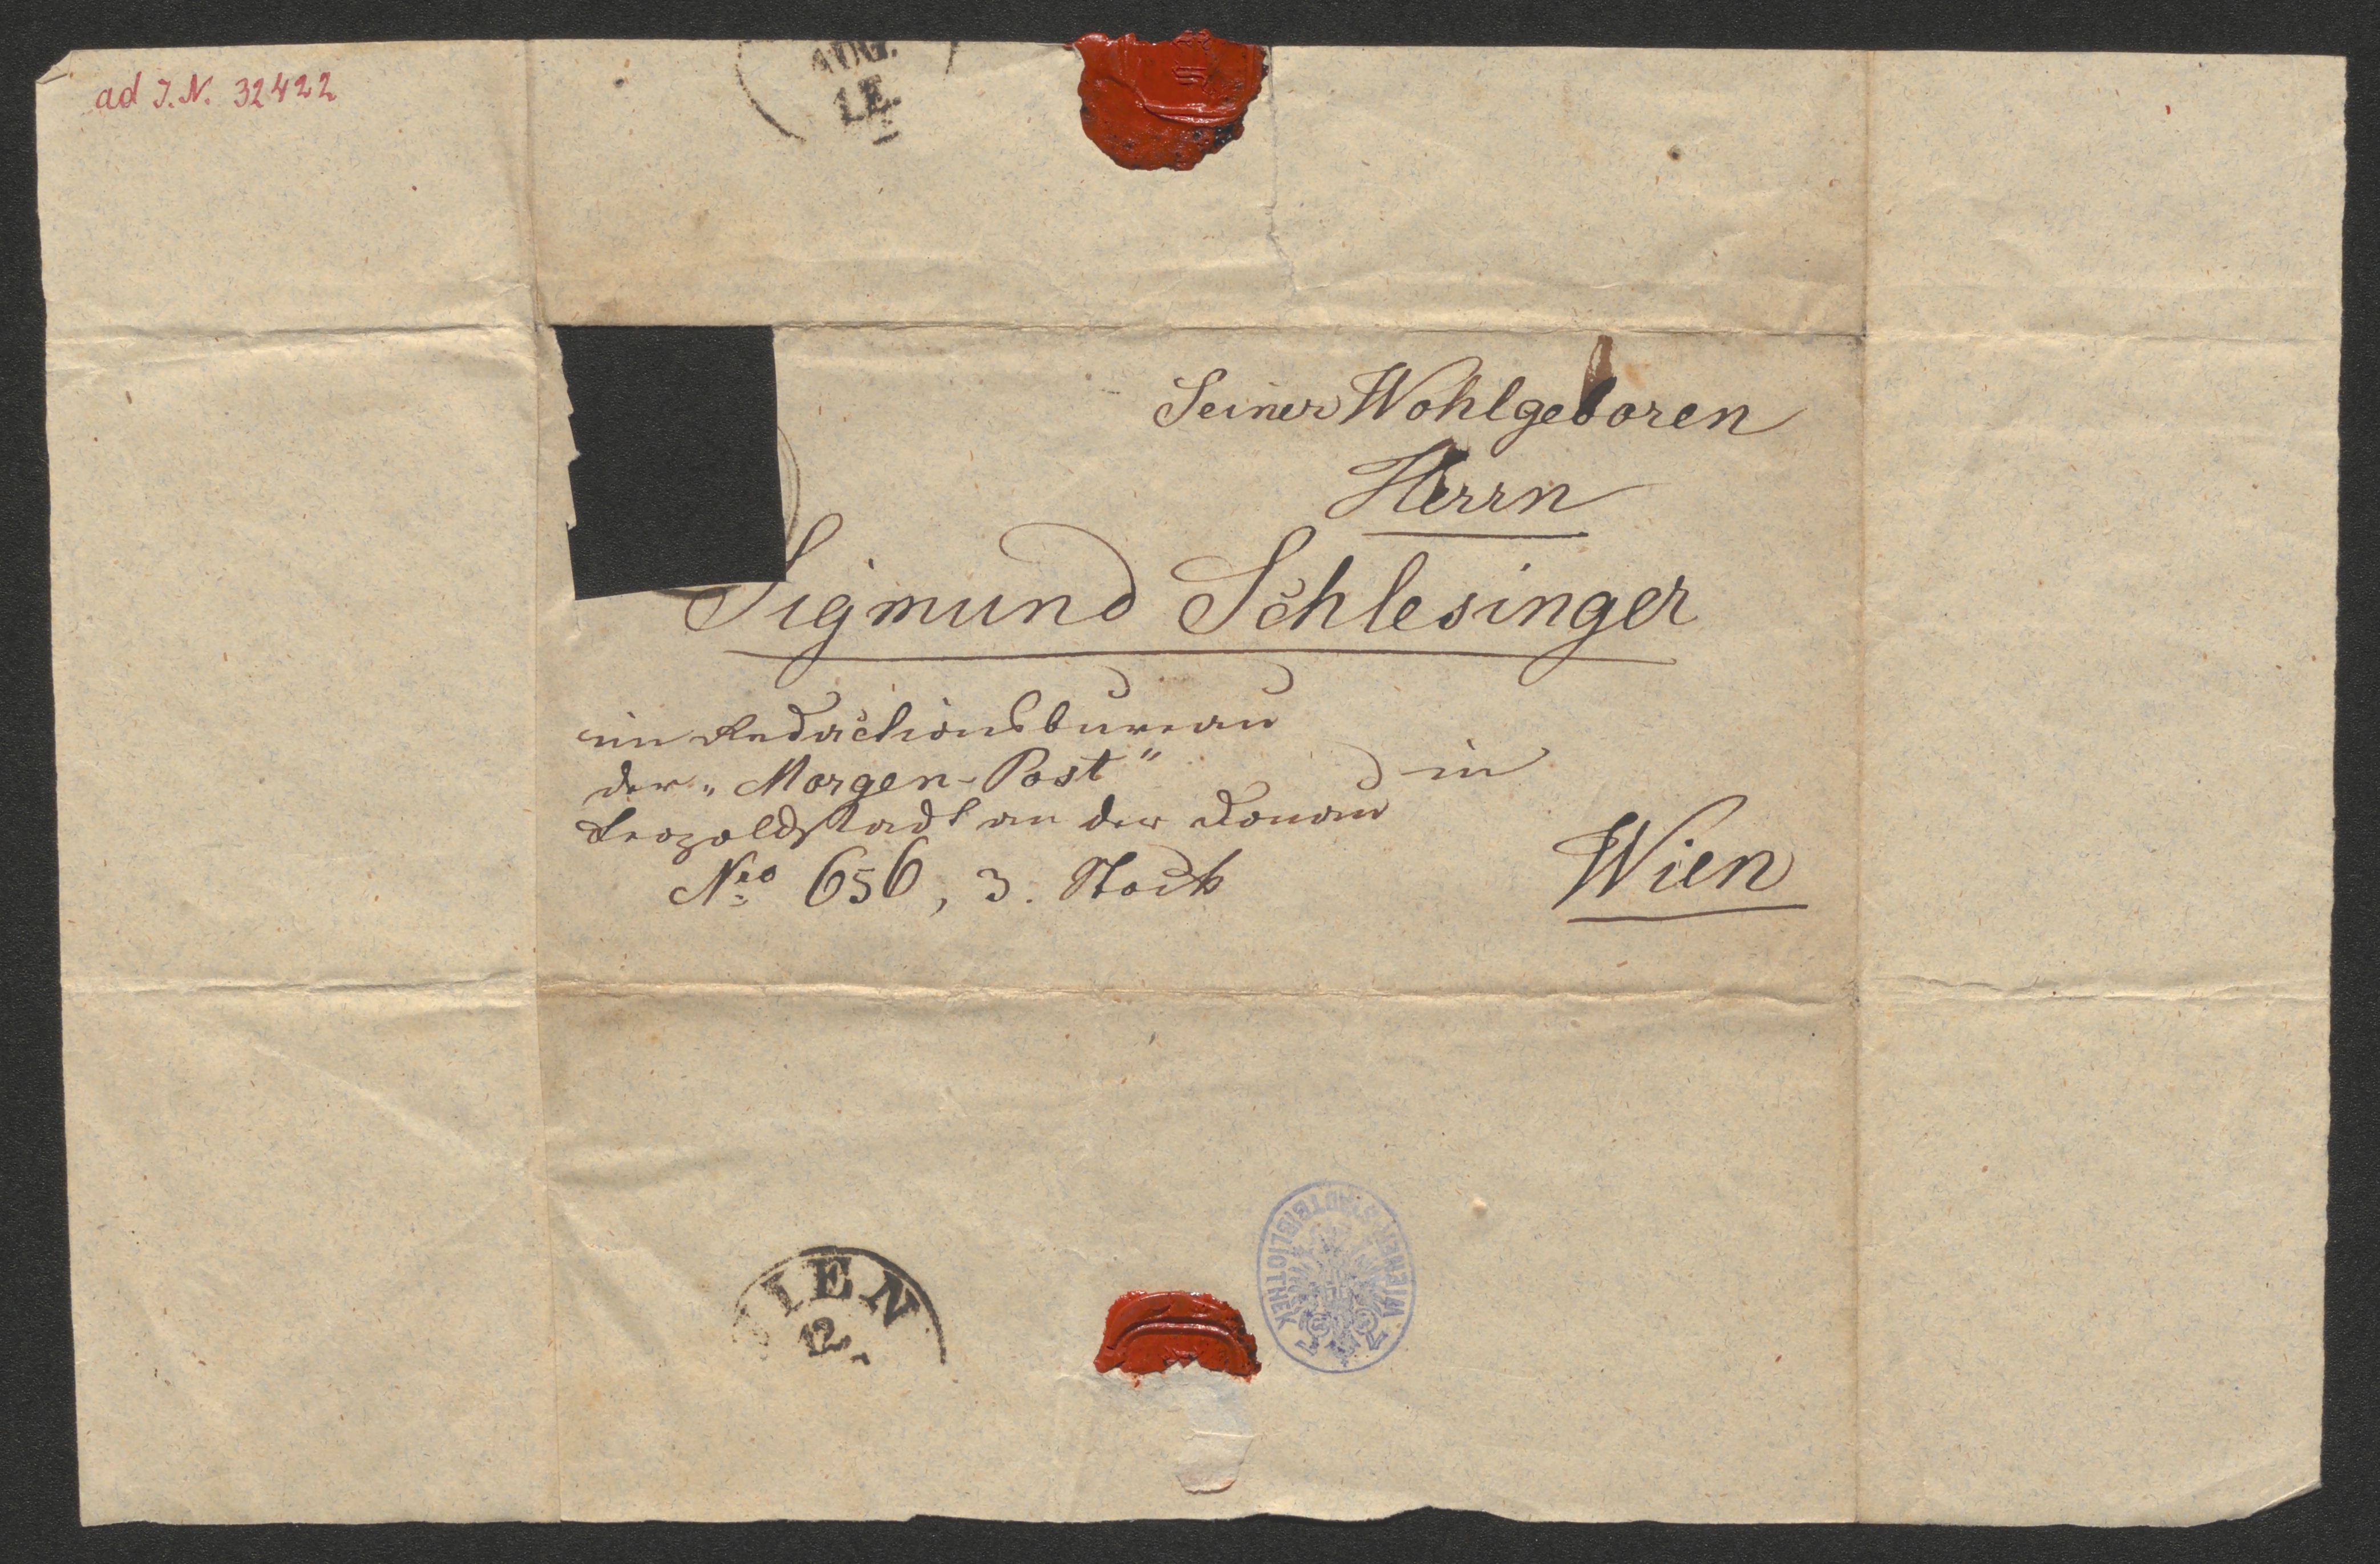 ad J.N. 32422
AUG.
I.E.
Seiner Wohlgeboren
Herrn
Sigmund Schlesinger
im Redactionsbureau
der „Morgen-Post"
in
Leopoldstadt an der Donau
Nro 656, 3. Stock
Wien
WIEN
12.
WIENER STADTBIBLIOTHEK